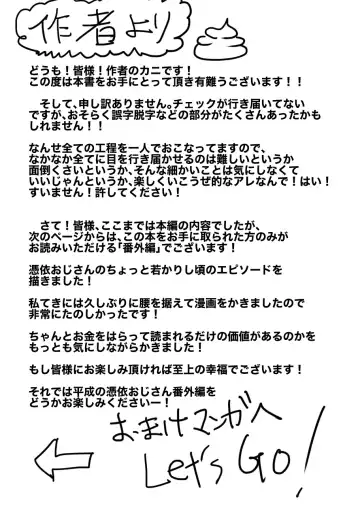 作者より
どうも！皆様！作者のカニです！
この度は本書をお手にとって頂き有難うございます！！
そして、申し訳ありません。チェックが行き届いてない
ですが、おそらく誤字脱字などの部分がたくさんあったかも
しれません！！
なんせ全ての工程を一人でおこなってますので、
なかなか全てに目を行き届かせるのは難しいというか
面倒くさいというか、そんな細かいことは気にしなくて
いいじゃんというか、楽しくいこうぜ的なアレなんで！はい！
すいません！許してください！
さて！皆様、ここまでは本編の内容でしたが、
次のページからは、この本をお手に取られた方のみが
お読みいただける「番外編」でございます！
憑依おじさんのちょっと若かりし頃のエピソードを
描きました！
私てきには久しぶりに腰を据えて漫画をかきましたので
非常にたのしかったです！
ちゃんとお金をはらって読まれるだけの価値があるのかを
もっとも気にしながらかきました！
もし皆様にお楽しみ頂ければ至上の幸福でございます！
それでは平成の憑依おじさん番外編を
どうかお楽しみくださいー！
おまけマンガへ
Let's GO!